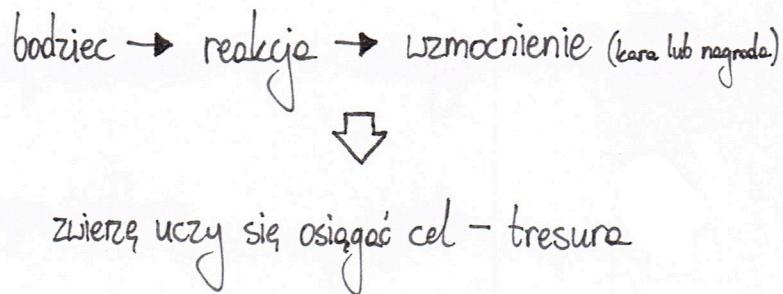 bodziec → reakcja → wzmocnienie (kara lub nagroda)
zwierzę uczy się osiągać cel - tresura